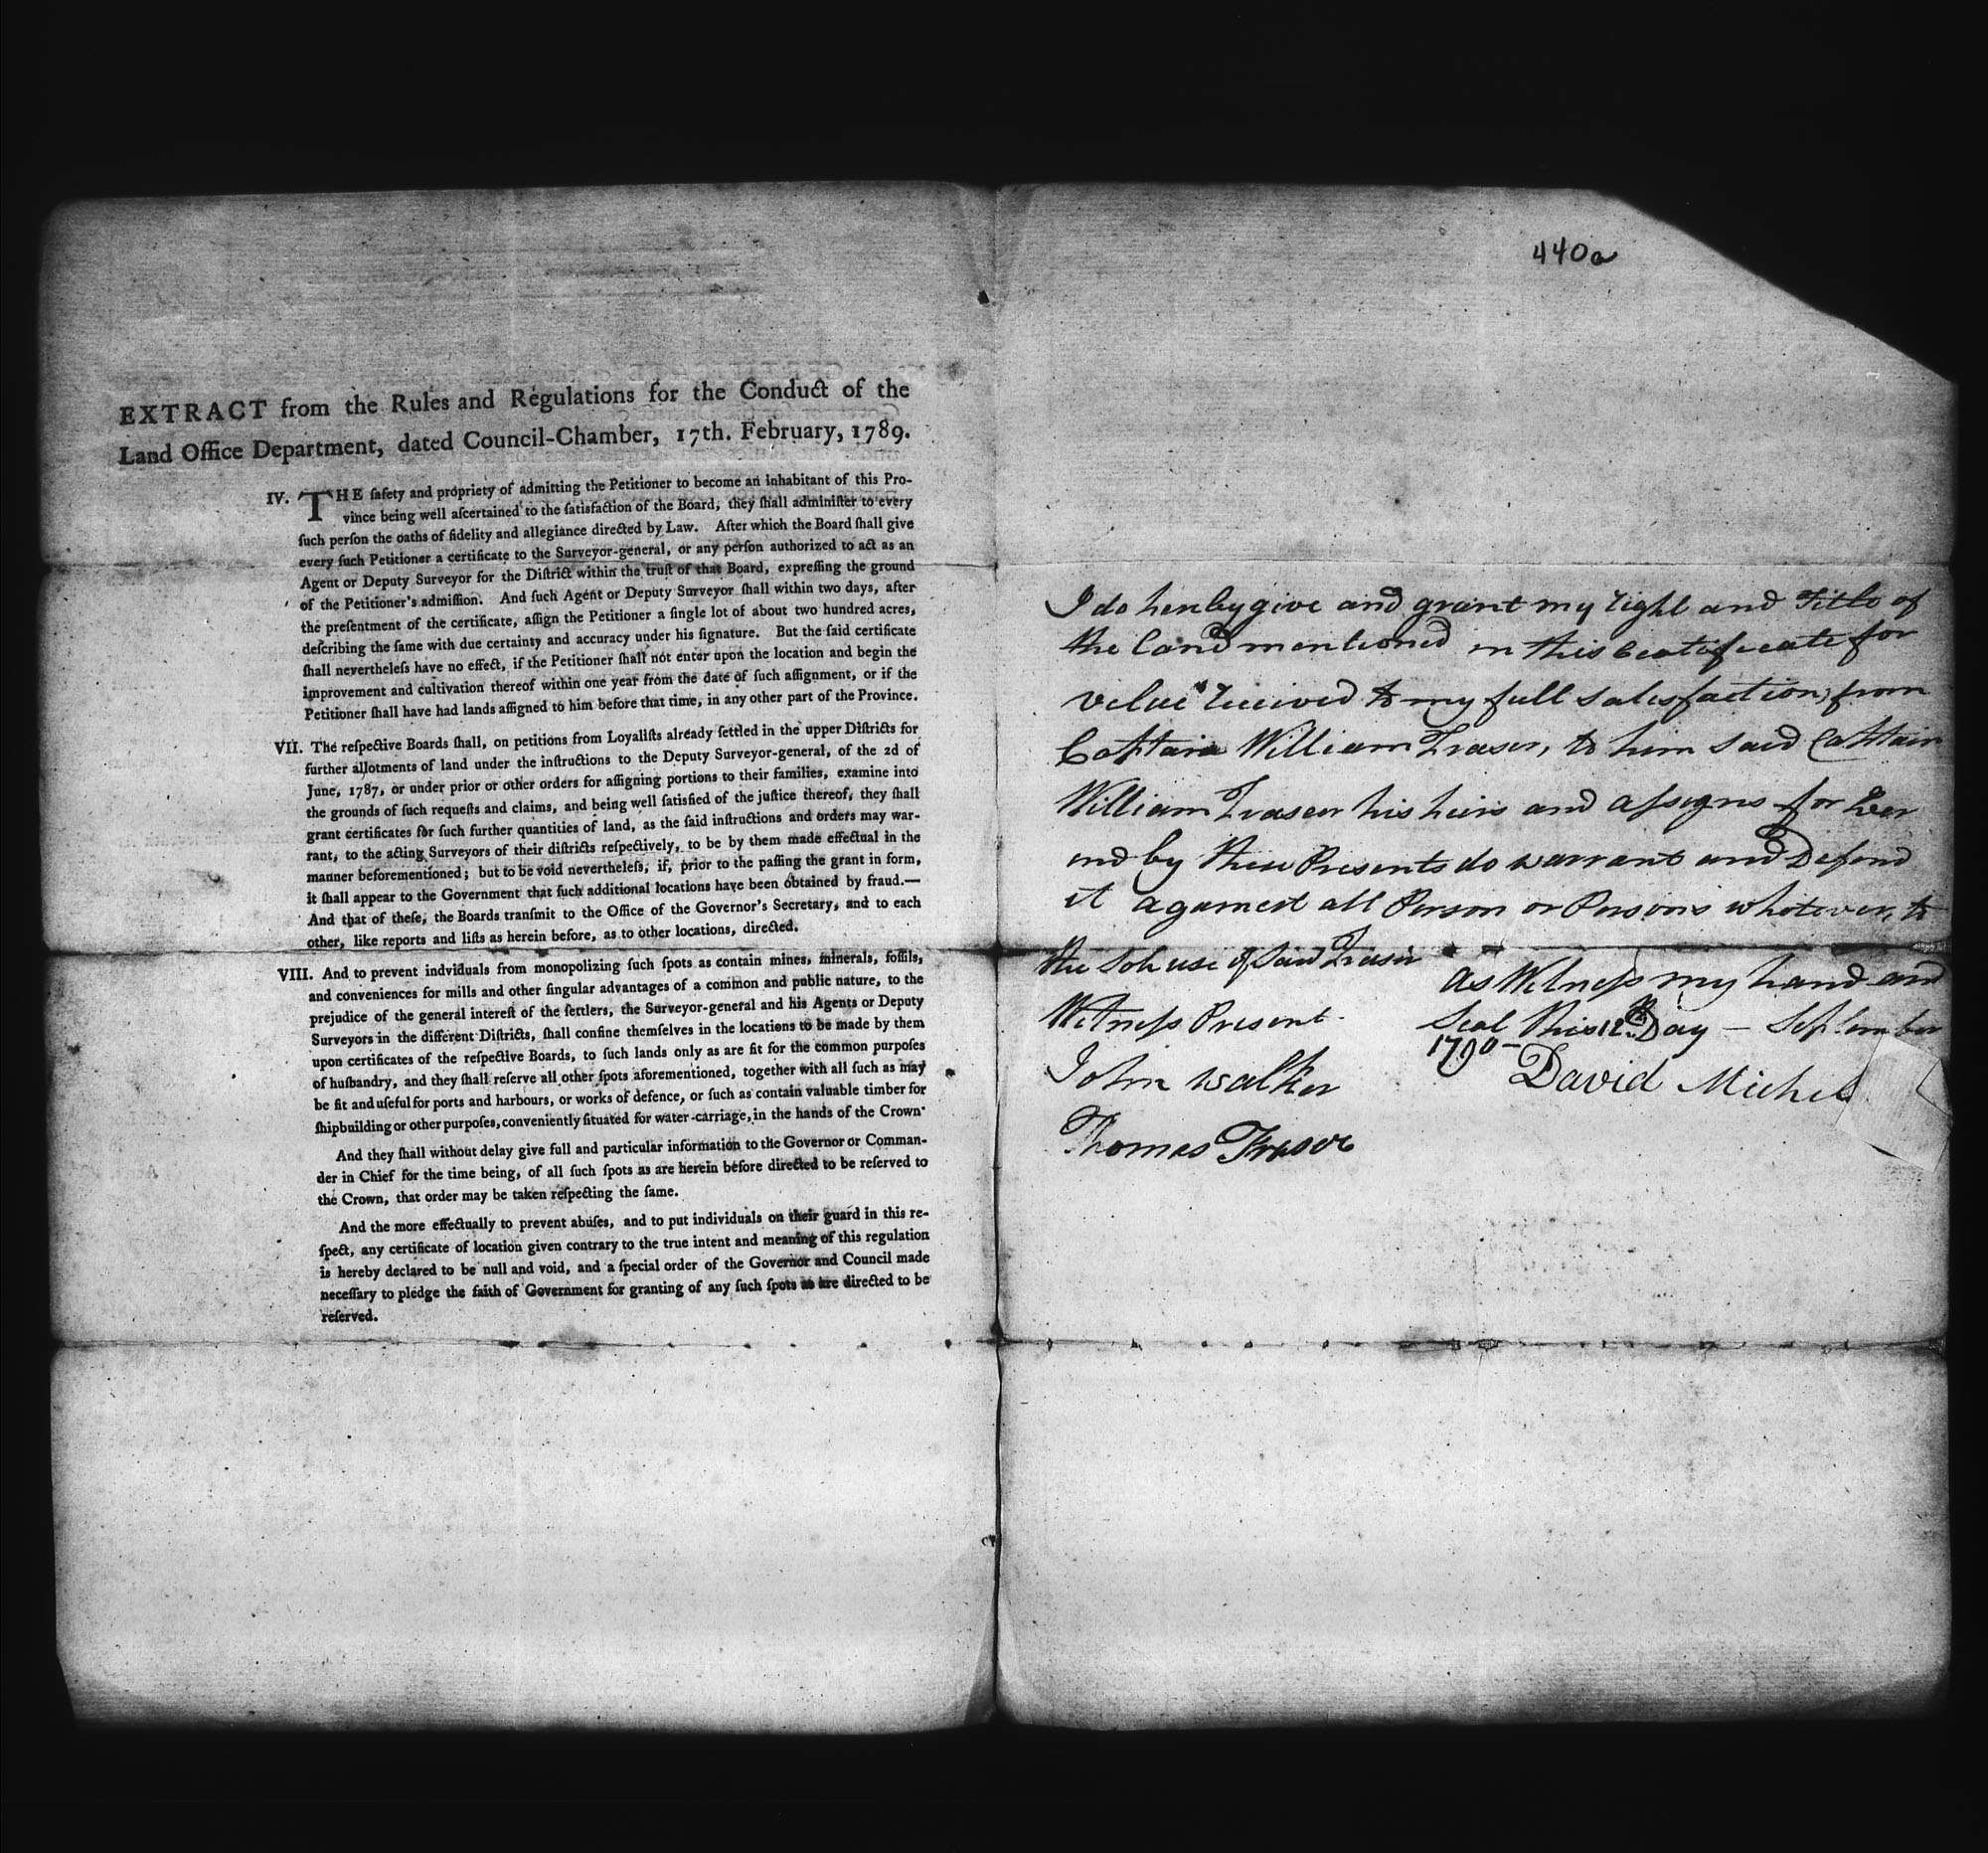 EXTRACT from the Rules and Regulations for the Conduct of the
Land Office Department, dated Council-Chamber, 17th. February, 1789.
IV. THE ſafety and propriety of admitting the Petitioner to become an inhabitant of this Pro-
vince being well aſcertained to the ſatisfaction of the Board, they ſhall adminiſter to every
ſuch perſon the oaths of fidelity and allegiance directed by Law. After which the Board ſhall give
every ſuch Petitioner a certificate to the Surveyor-general, or any perſon authorized to act as an
Agent or Deputy Surveyor for the Diſtrict within the truſt of that Board, expreſſing the ground
of the Petitioner's admiſſion. And ſuch Agent or Deputy Surveyor ſhall within two days, after
the preſentment of the certificate, aſſign the Petitioner a ſingle lot of about two hundred acres,
deſcribing the ſame with due certainty and accuracy under his ſignature. But the ſaid certificate
ſhall nevertheleſs have no effect, if the Petitioner ſhall not enter upon the location and begin the
improvement and cultivation thereof within one year from the date of ſuch aſſignment, or if the
Petitioner ſhall have had lands aſſigned to him before that time, in any other part of the Province.
VII. The reſpective Boards ſhall, on petitions from Loyaliſts already ſettled in the upper Diſtricts for
further allotments of land under the inſtructions to the Deputy Surveyor-general, of the 2d of
June, 1787, or under prior or other orders for aſſigning portions to their families, examine into
the grounds of ſuch requeſts and claims, and being well ſatisfied of the juſtice thereof, they ſhall
grant certificates for ſuch further quantities of land, as the ſaid inſtructions and orders may war-
rant, to the acting Surveyors of their diſtricts reſpectively, to be by them made effectual in the
manner beforementioned; but to be void nevertheleſs, if, prior to the paſſing the grant in form,
it ſhall appear to the Government that ſuch additional locations have been obtained by fraud.—
And that of theſe, the Boards tranſmit to the Office of the Governor's Secretary, and to each
other, like reports and liſts as herein before, as to other locations, directed.
VIII. And to prevent indviduals from monopolizing ſuch ſpots as contain mines, minerals, foſſils,
and conveniences for mills and other ſingular advantages of a common and public nature, to the
prejudice of the general intereſt of the ſettlers, the Surveyor-general and his Agents or Deputy
Surveyors in the different Diſtricts, ſhall confine themſelves in the locations to be made by them
upon certificates of the reſpective Boards, to ſuch lands only as are fit for the common purpoſes
of huſbandry, and they ſhall reſerve all other ſpots aforementioned, together with all ſuch as may
be fit and uſeful for ports and harbours, or works of defence, or ſuch as contain valuable timber for
ſhipbuilding or other purpoſes, conveniently ſituated for water-carriage, in the hands of the Crown
And they ſhall without delay give full and particular information to the Governor or Comman-
der in Chief for the time being, of all ſuch ſpots as are herein before directed to be reſerved to
the Crown, that order may be taken reſpecting the ſame.
And the more effectually to prevent abuſes, and to put individuals on their guard in this re-
ſpect, any certificate of location given contrary to the true intent and meaning of this regulation
is hereby declared to be null and void, and a ſpecial order of the Governor and Council made
neceſſary to pledge the faith of Government for granting of any ſuch ſpots as are directed to be
reſerved.
440a
I do herebygive and grant my right and Title of
the Land mentioned in this Ceatificate for
velue received to my full satesfaction, from
Captain William Fraser, to him said Captain
William Fraser his heirs and aſsigns for Ever
and by these Presents do warrant and Defend
it againest all Person or Persons whotever, to
the sole use of said Fraser
as Witneſs my hand and
Seal this 12th Day — September
1790 —
David Michel
Witneſs Present
John Walker
Thomas Fraser